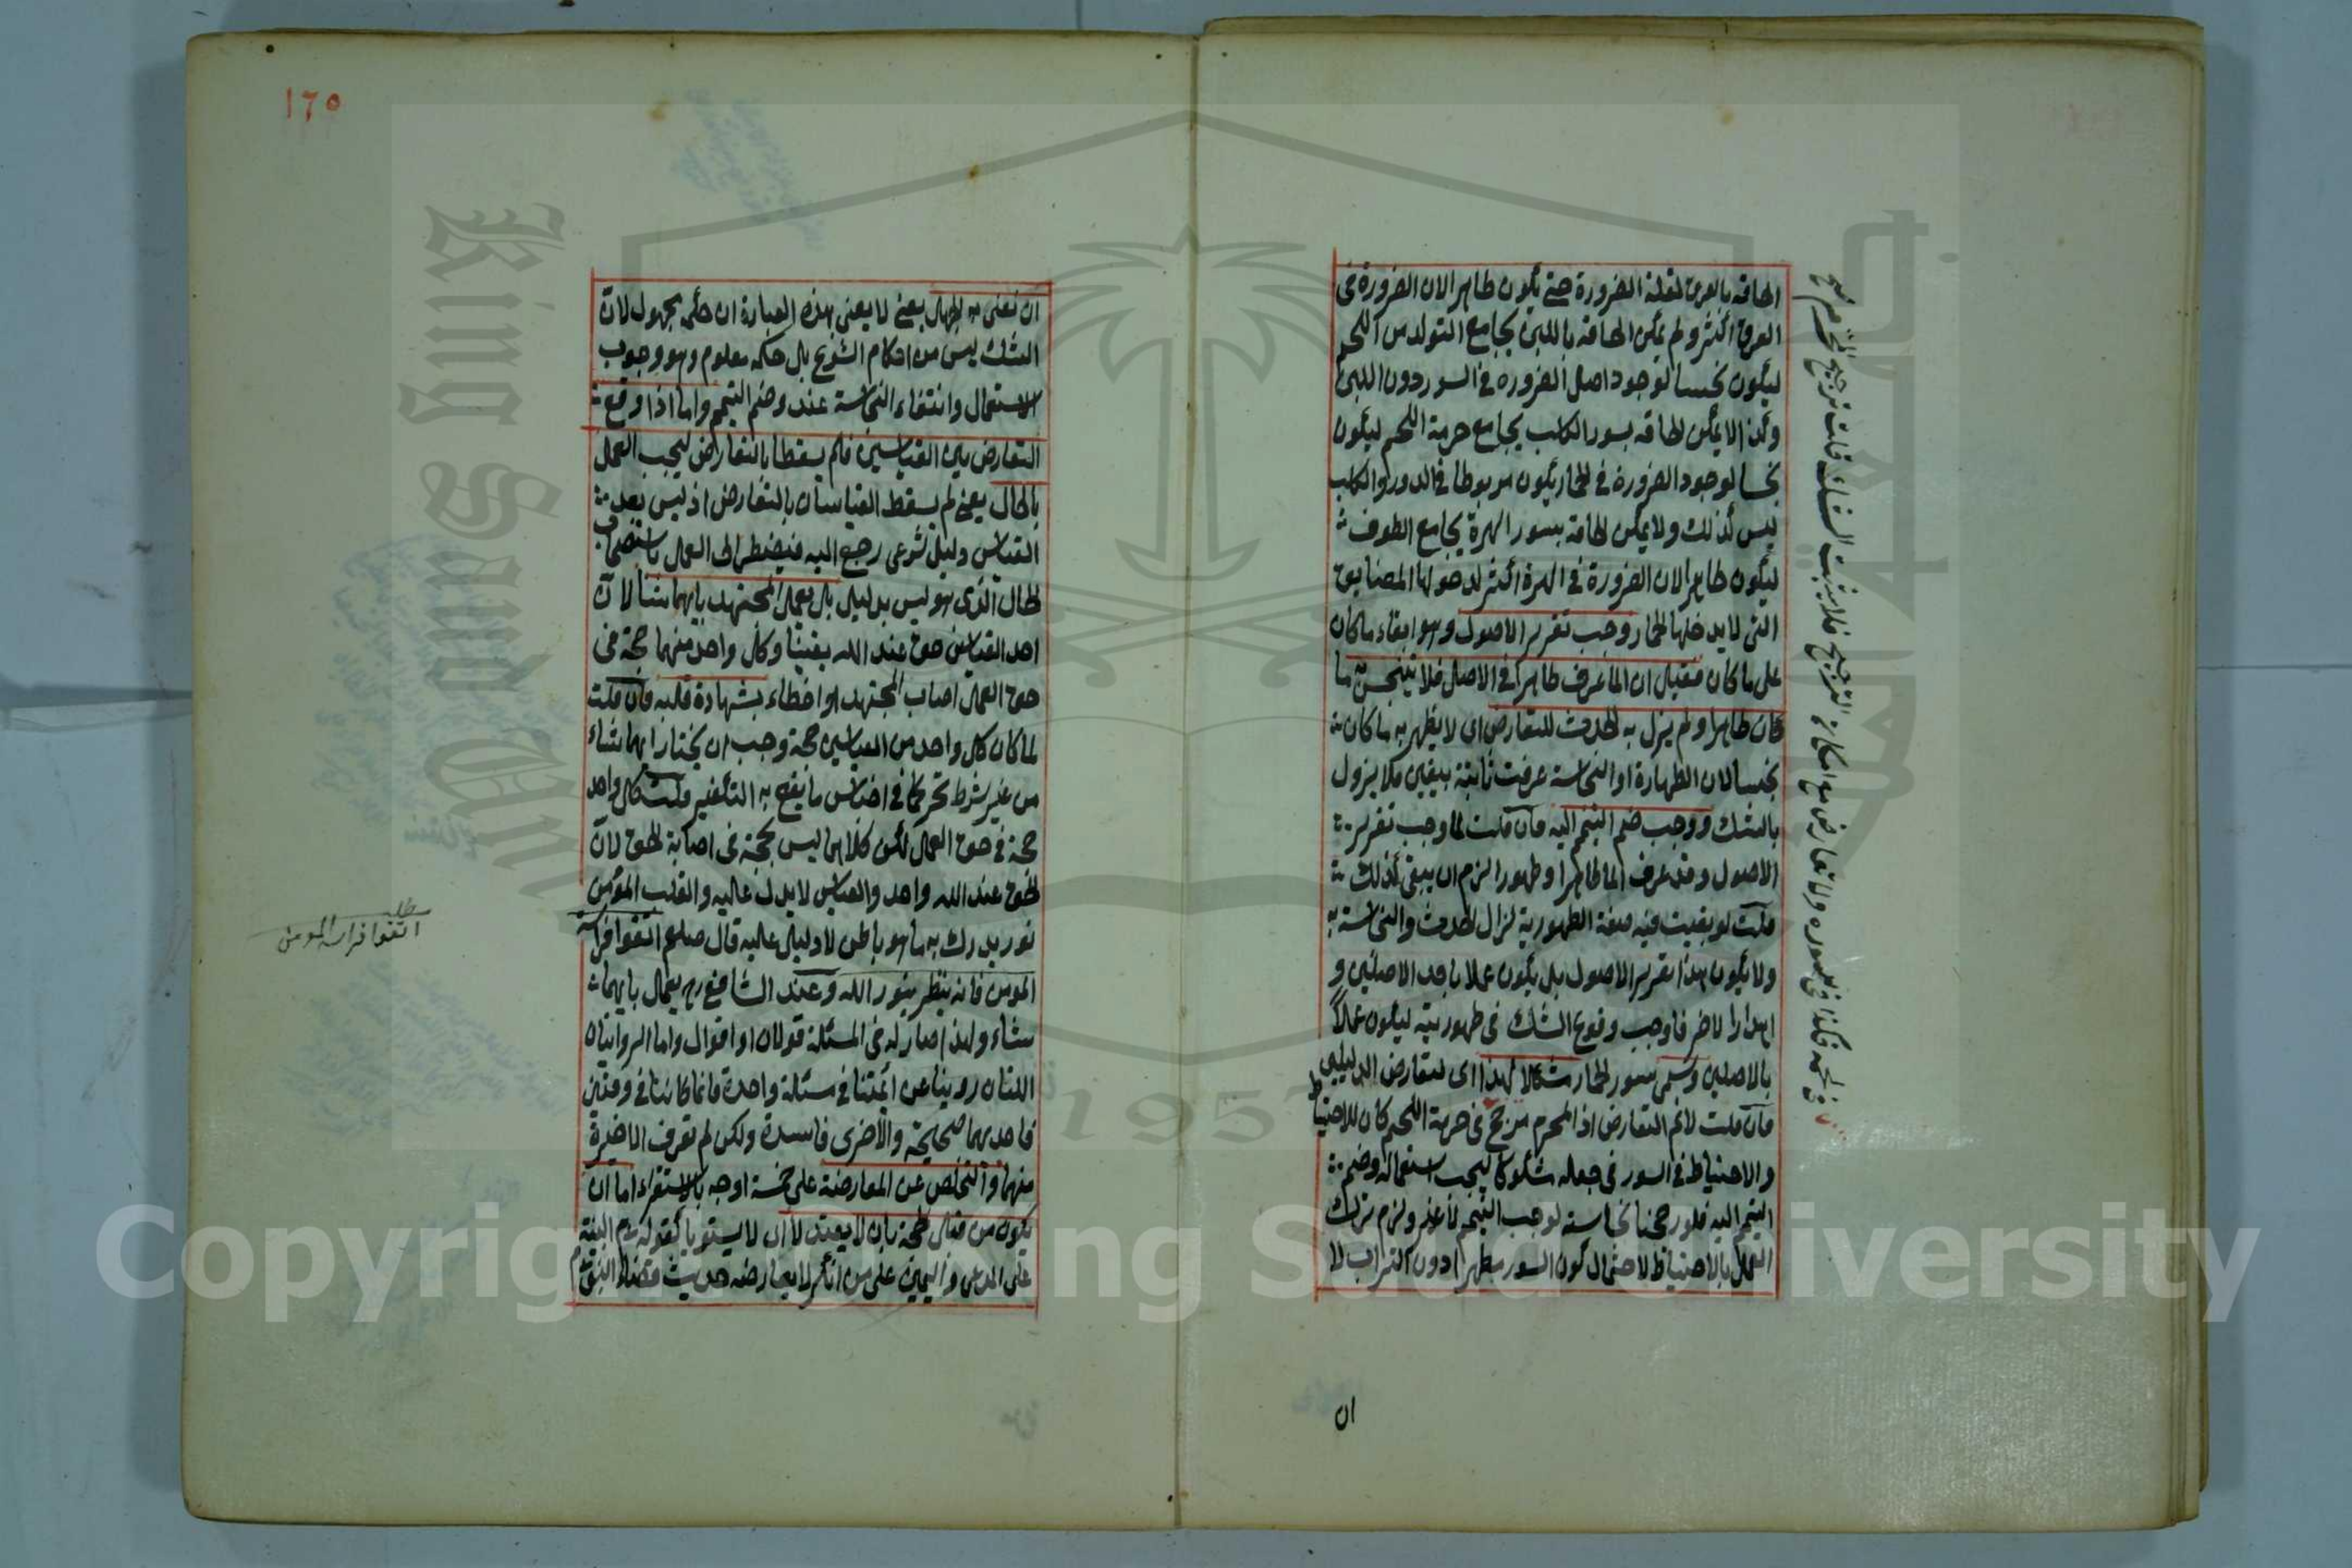 الحاقه بالعرق لقلة الضرورة حتى يكون طاهرا لان الضرورة في
العرق اكثر ولم يمكن الحاقه باللبن بجامع التولد من اللحم
ليكون نجسا لوجود اصل الضرورة في السور دون اللبن
وكذا لا يمكن الحاقه بسور الكلب بجامع حرمة اللحم ليكون
نجسا لوجود الضرورة في الحمار يكون مربوطا في الدور والكلب
ليس كذلك ولا يمكن الحاقه بسور الهرة بجامع الطوف
ليكون طاهرا لان الضرورة في الهرة اكثر لدخولها المضايق
التي لا يدخلها الحمار وجب تقرير الاصول وهو ابقاء ما كان
على ما كان فقيل ان الما عرف طاهرا في الاصل فلا يتنجس به ما
كان طاهرا ولم يزل به الحدث للتعارض اي لا يطهر به ما كان
نجسا لان الطهارة او النجاسة عرفت ثابتة بيقين فلا يزول
بالشك ووجب ضم التيمم اليه فان قلت لما وجب تقرير
الاصول وقد عرف الما طاهرا وطهورا لزم ان يبقى كذلك
قلت لو بقيت فيه صفة الطهورية لزال الحدث والنجاسة به
ولا يكون هذا تقرير الاصول بل يكون عملا باحد الاصلين و
اهدارا لاخر فاوجب وقوع الشك في طهوريته ليكون عملا
بالاصلين وسمي سور الحمار مشكلا لهذا اى لتعارض الدليلين
فان قلت لا نم التعارض اذ المحرم مرجح في حرمة اللحم كان للاحتياط
والاحتياط في السور في جعله مشكوكا ليجب استعماله وضم
التيمم اليه فلو رجحنا نجاسته لوجب التيمم لا غير ولزم ترك
العمل بالاحتياط لاحتمال كون السور مطهرا دون التراب لا
ان
١٦٥
ان نعنى به الجهل يعنى لا يعنى بهذه العبارة ان حكمه مجهول لان
الشك ليس من احكام الشرع بل حكمه معلوم وهو وجوب
الاستعمال وانتفاء النجاسة عنه وضم التيمم واما اذا وقع
التعارض بين القياسين فلم يسقطا بالتعارض ليجب العمل
بالحال يعنى لم يسقط القياسان بالتعارض اذ ليس بعد
القياس دليل شرعى رجع اليه فيضطر الى العمل باستصحاب
الحال الذى هو ليس بدليل بل يعمل المجتهد بايهما شا لان
احد القياسين حق عند الله يقينا وكل واحد منهما حجة فى
حق العمل اصاب المجتهد او اخطاء بشهادة قلبه فان قلت
لما كان كل واحد من القياسين حجة وجب ان يختار ايهما شاء
من غير شرط تحر كما في اجناس ما يقع به التكفير قلت كل واحد
حجة في حق العمل لكن كلاهما ليس بحجة فى اصابة الحق لان
الحق عند الله واحد والقياس لا يدل عليه والقلب المؤمن
نور يدرك به ما هو باطن لا دليل عليه قال صلعم اتقوا فراسة
المومن فانه ينظر بنور الله وعند الشافعى رح يعمل بايهما
شاء ولهذا صار له فى المسئلة قولان او اقوال واما الروايتان
اللتان رويتا عن ائمتنا في مسئلة واحدة فانما كانتا في وقتين
فاحديهما صحيحة والاخرى فاسدة ولكن لم تعرف الاخيرة
منهما والتخلص عن المعارضة على خمسة اوجه بالاستقراء اما ان
يكون من قبل الحجة بان لا يعتدلا اى لا يستويا كقوله عم البينة
على المدعى واليمين على من انكر لا يعارضه حديث قضاء النبى عم
مطلب
اتقوا فراسة المومن